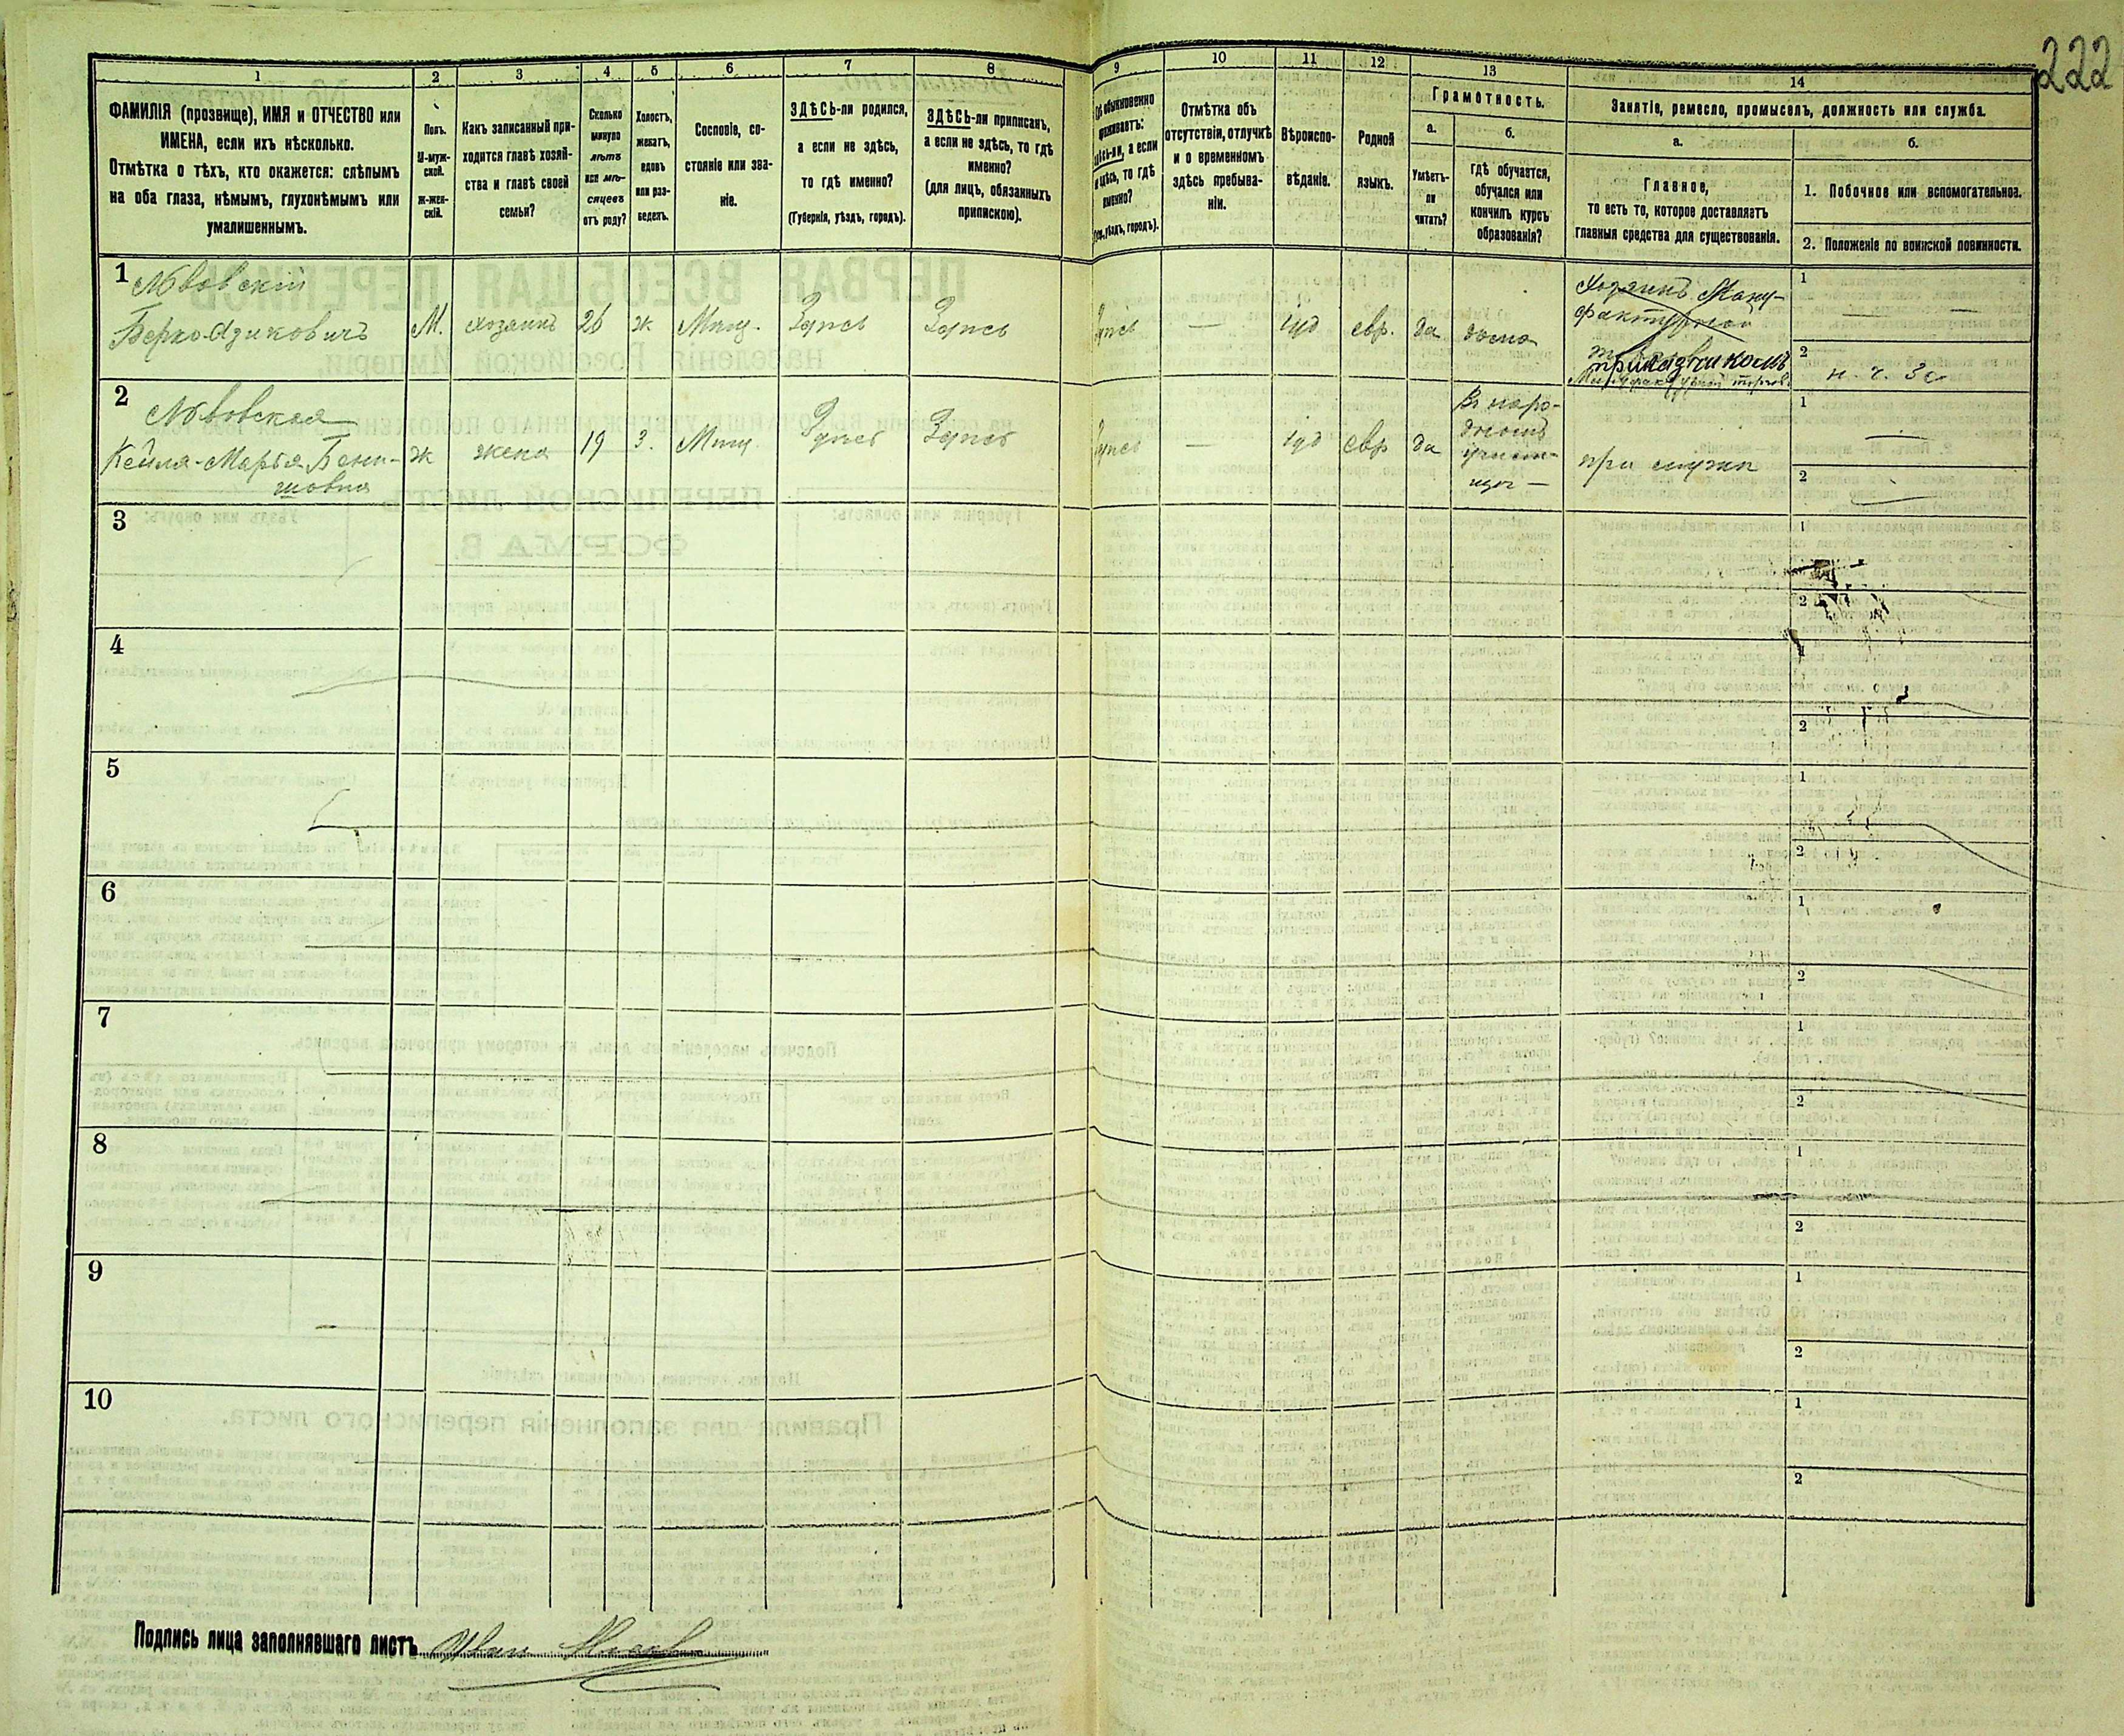 222
1
2
3
4
5
6
7
8
9
10
11
12
13
14
ФАМИЛІЯ (прозвище), ИМЯ и ОТЧЕСТВО или
ИМЕНА, если ихъ нѣсколько.
Отмѣтка о тѣхъ, кто окажется: слѣпымъ
на оба глаза, нѣмымъ, глухонѣмымъ или
умалишеннымъ.
Полъ.
М-муж-
ской.
Ж-жен-
скій.
Какъ записанный при-
ходится главѣ хозяй-
ства и главѣ своей
семьи?
Сколько
минуло
лѣтъ
или мѣ-
сяцевъ
отъ роду?
Холостъ,
женатъ,
вдовъ
или раз-
веденъ.
Сословіе, со-
стояніе или зва-
ніе.
ЗДѢСЬ-ли родился,
а если не здѣсь,
то гдѣ именно?
(Губернія, уѣздъ, городъ).
ЗДѢСЬ-ли приписанъ,
а если не здѣсь, то гдѣ
именно?
(для лицъ, обязанныхъ
припискою).
обыкновенно
проживаетъ:
здѣсь-ли, а если
не здѣсь, то гдѣ
именно?
уѣздъ, городъ).
Отмѣтка объ
отсутствіи, отлучкѣ
и о временномъ
здѣсь пребыва-
ніи.
Вѣроиспо-
вѣданіе.
Родной
языкъ.
Грамотность.
а.
б.
Умѣетъ-
ли
читать?
гдѣ обучается,
обучался или
кончилъ курсъ
образованія?
Занятіе, ремесло, промыселъ, должность или служба.
а.
б.
Главное,
то есть то, которое доставляетъ
главныя средства для существованія.
1. Побочное или вспомогательное.
2. Положеніе по воинской повинности.
1 Львовскій
Берко Азиковичъ М. хозяинъ 26 ж Мѣщ. Здѣсь Здѣсь Здѣсь — іуд евр. да дома
Хозяинъ Ману-
фактурной
прикащикомъ
1 — —
2
2 Львовская
Кейля-Марья Бени- ж жена 19 З. Мѣщ. Здѣсь Здѣсь Здѣсь — іуд евр да
шовна
Въ народномъ
при мужѣ
1 —
2
3
1
2
4
1
2
5
1
2
6
1
2
7
1
2
8
1
2
9
1
2
10
1
2
Подпись лица заполнявшаго листъ